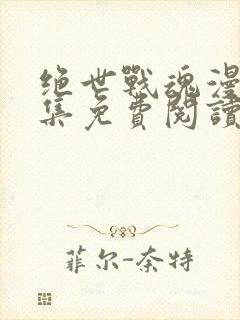 绝世戰魂漫
集免費閱讀
菲尔-奈特